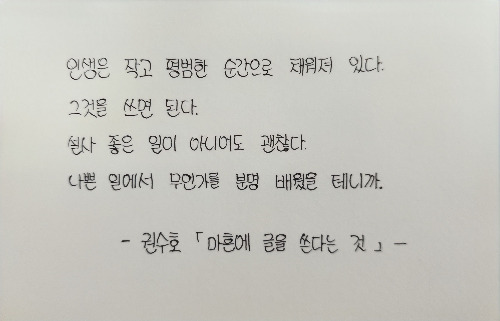 인생은 작고 평범한 순간으로 채워져 있다.
그것을 쓰면 된다.
설사 좋은 일이 아니어도 괜찮다.
나쁜 일에서 무언가를 분명 배웠을 테니까.
- 권수호 「마흔에 글을 쓴다는 것」-